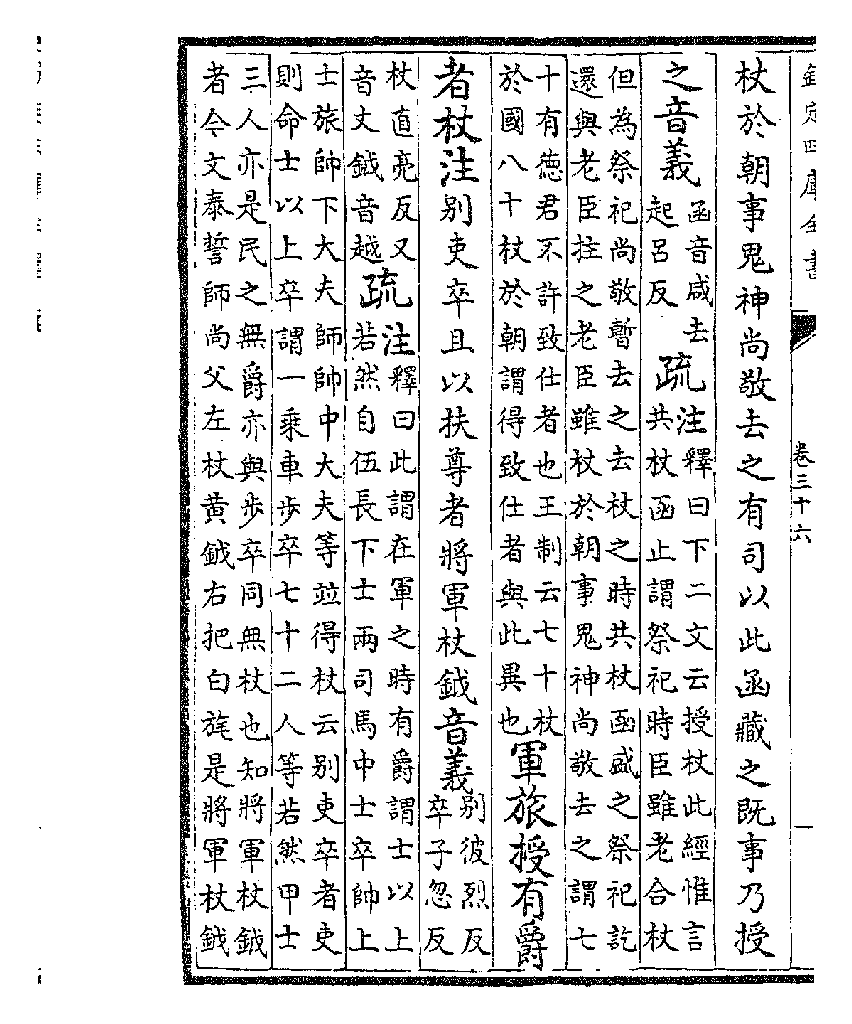 欽定四庫全書
卷三十六
杖於朝事鬼神尚敬去之有司以此函藏之既事乃授
之音義
函音咸去
起呂反
疏
注釋曰下二文云授杖此經惟言
共杖函止謂祭祀時臣雖老合杖
但為祭祀尚敬暫去之去杖之時共杖函盛之祭祀訖
還與老臣拄之老臣雖杖於朝事鬼神尚敬去之謂七
十有德君不許致仕者也王制云七十杖
於國八十杖於朝謂得致仕者與此異也
軍旅授有爵
者杖注別吏卒且以扶尊者將軍杖鉞音義
別彼烈反
卒子忽反
杖直亮反又
音丈鉞音越
疏
注釋曰此謂在軍之時有爵謂士以上
若然自伍長下士兩司馬中士卒帥上
士旅帥下大夫師帥中大夫等並得杖云別吏卒者吏
則命士以上卒謂一乘車步卒七十二人等若然甲士
三人亦是民之無爵亦與步卒同無杖也知將軍杖鉞
者今文泰誓師尚父左杖黄鉞右把白旄是將軍杖鉞